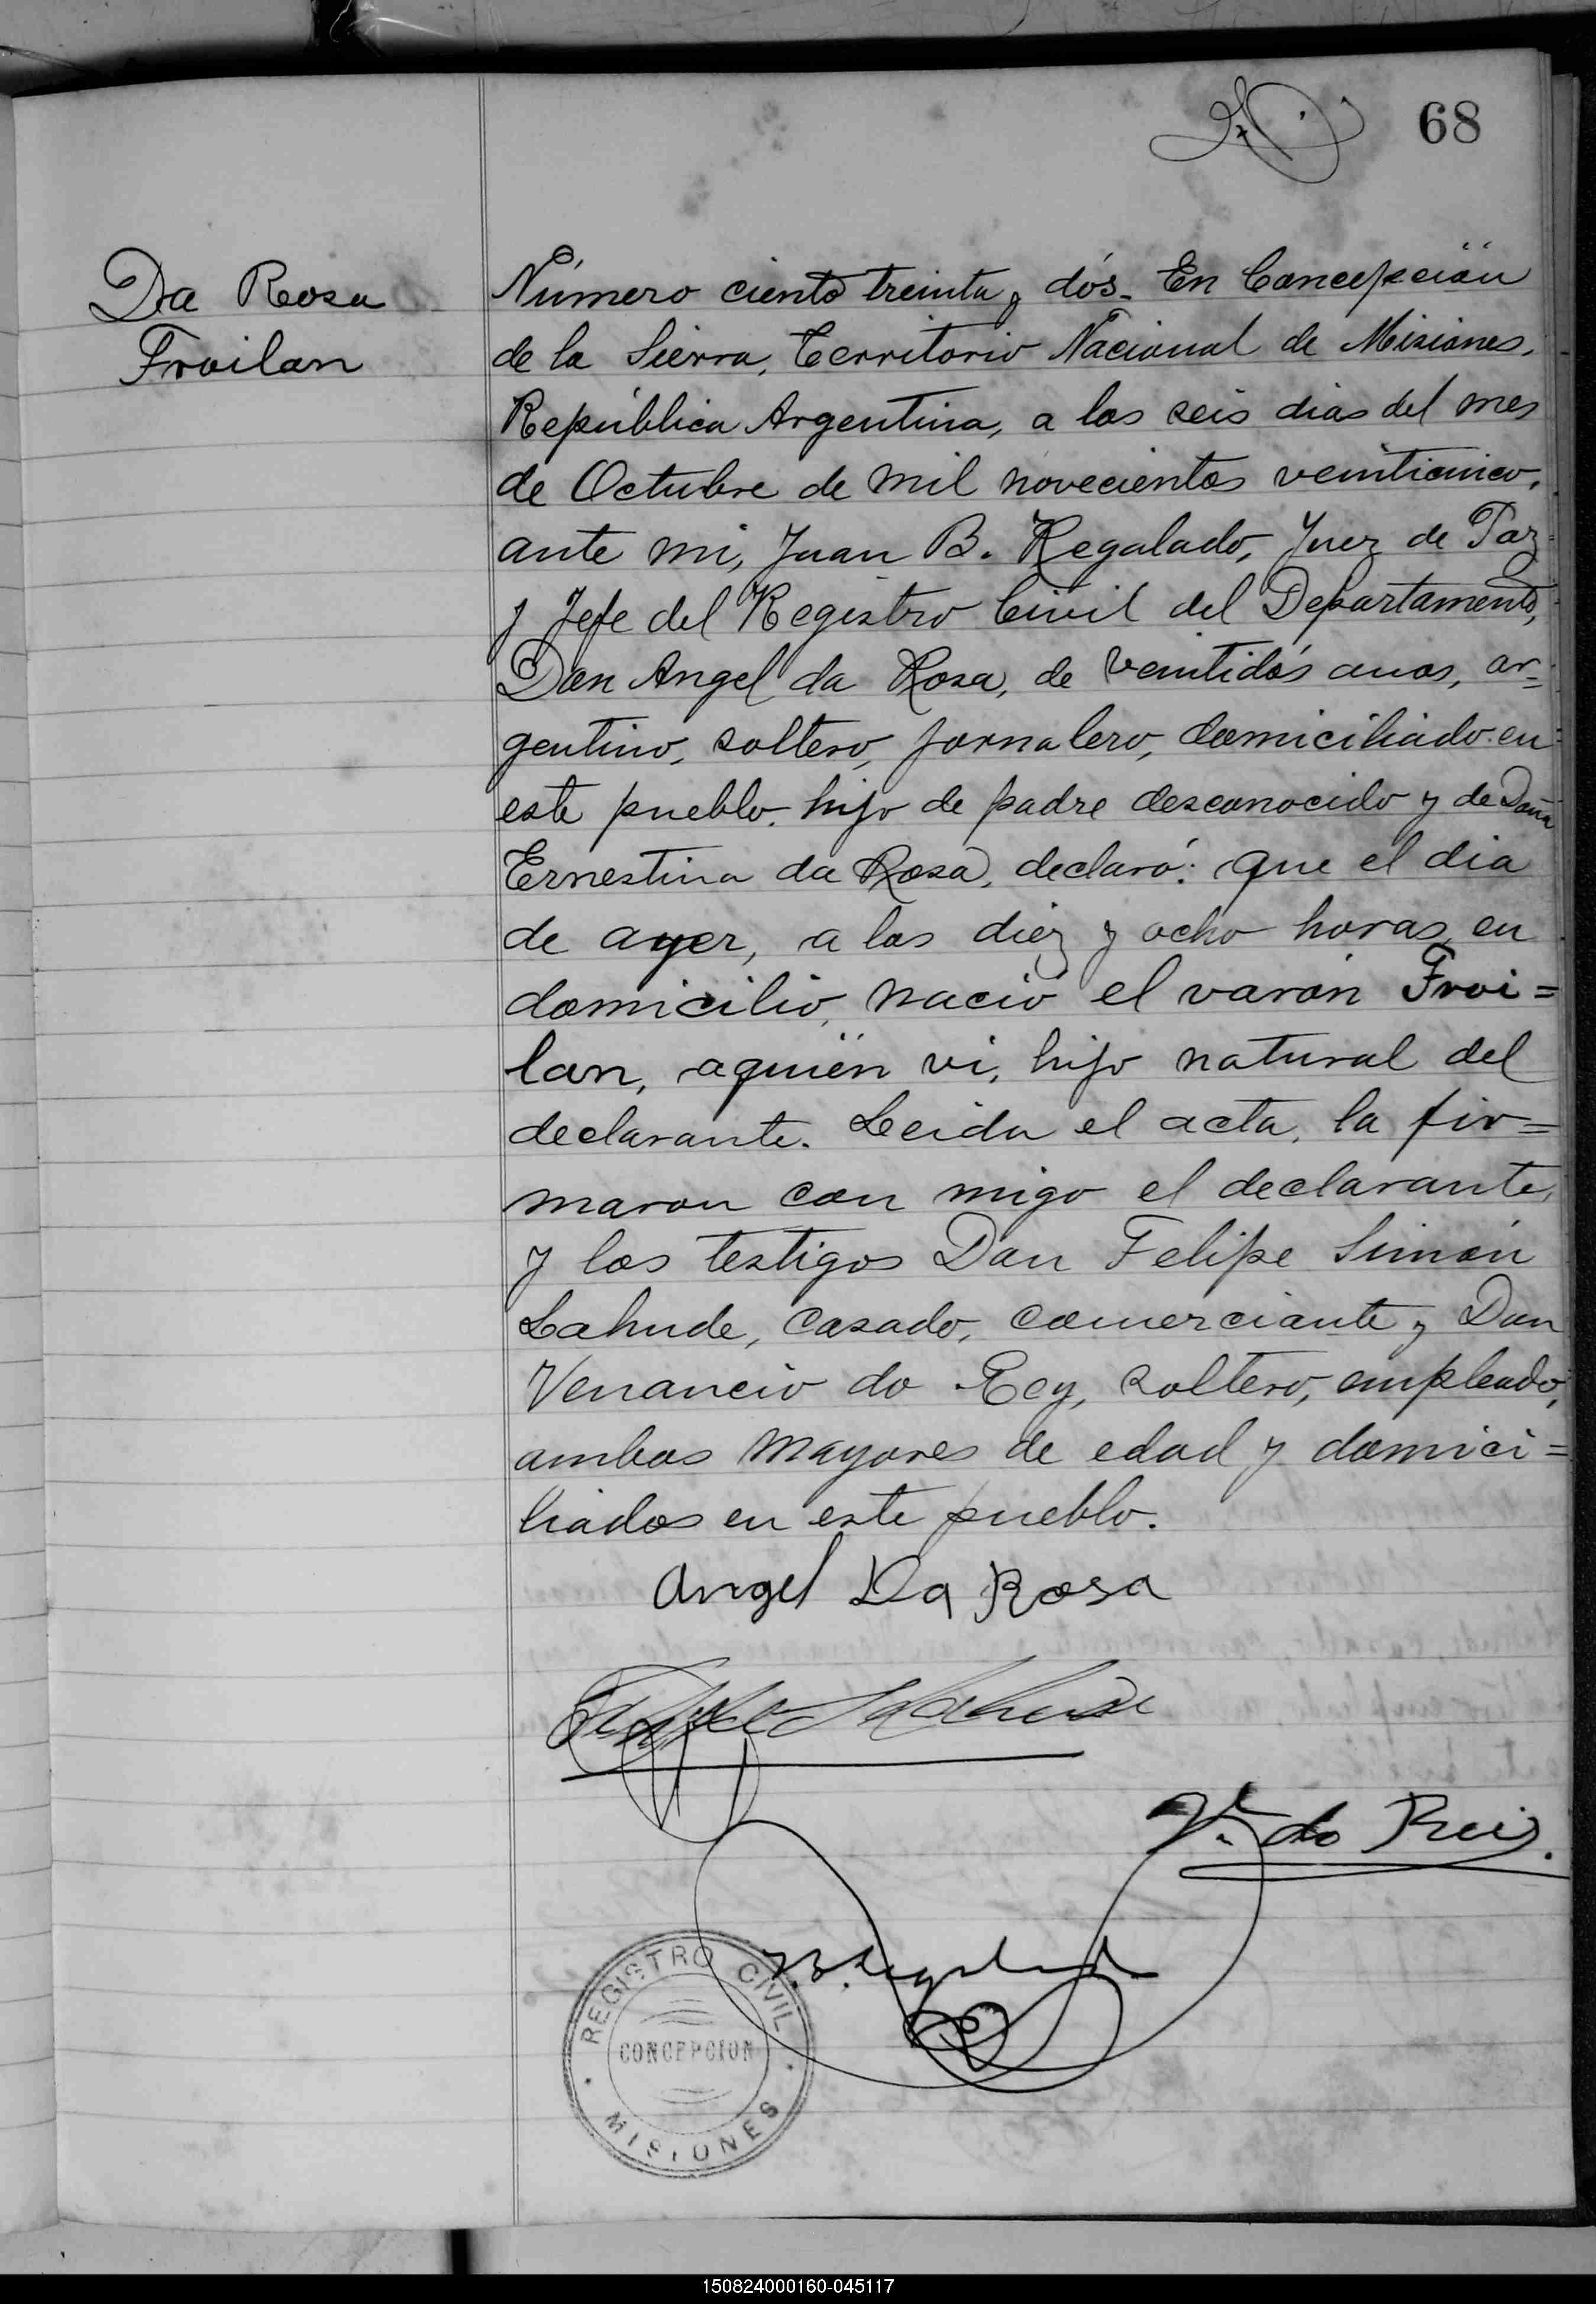 68
Da Rosa
Froilan
Número ciento treinta y dós. En Concepción
de la Sierra, Territorio Nacional de Misiones,
República Argentina, a los seis dias del mes
de Octubre de mil novecientos veinticinco,
ante mi, Juan B. Regalado, Juez de Paz
y Jefe del Registro Civil del Departamento,
Don Angel da Rosa, de veintidós anos, ar=
gentino, soltero, jornalero, domiciliado en
este pueblo, hijo de padre desconocido y de Doña
Ernestina da Rosa, declaró: que el dia
de ayer, a las diez y ocho horas, en
domicilio, nació el varón Froi=
lan, aquién vi, hijo natural del
declarante. Leida el acta, la fir=
maron con migo el declarante,
y los testigos Don Felipe Simón
Lahude, casado, comerciante y Don
Venancio do Rey, soltero, empleado,
ambos mayores de edad y domici=
liados en este pueblo.
Angel Da Rosa
V. do Reis.
REGISTRO CIVIL
CONCEPCION
MISIONES
150824000160-045117